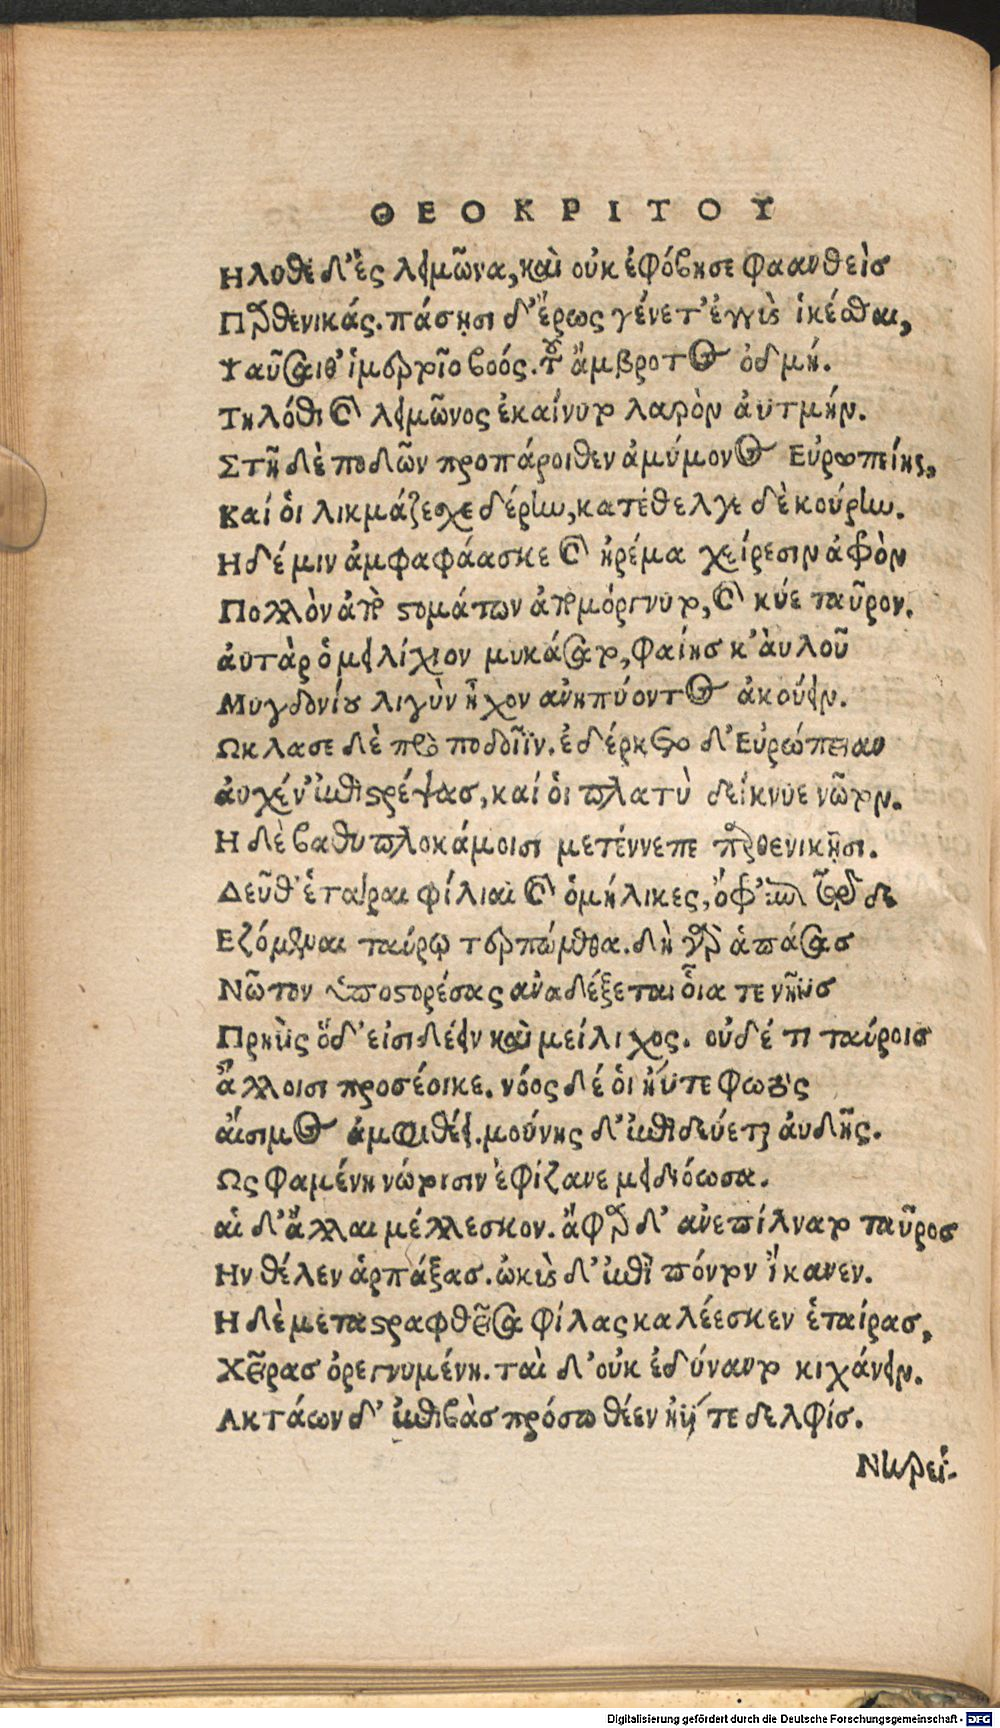 ΘΕΟΚΡΙΤΟΥ
Ηλυθε δ' ἐς λειμῶνα, καὶ οὐκ ἐφόβησε φαανθεὶσ
Παρθενικάς. πάσησι δ' ἔρως γένετ' ἐγγὺς ἱκέσθαι,
Ψαῦσαι θ' ἱμερτοῖο βοός. τοῦ ἄμβροτος ὀδμή.
Τηλόθι καὶ λειμῶνος ἐκαίνυτο λαρὸν ἀϋτμήν.
Στῆ δὲ ποδῶν προπάροιθεν ἀμύμονος Εὐρωπείης,
Καί ὁι λιχμάζεσκε δέρην, κατέθελγε δὲ κούρην.
Η δέ μιν ἀμφαφάασκε καὶ ἠρέμα χείρεσιν ἀφρὸν
Πολλὸν ἀπὸ στομάτων ἀπομόργνυτο, καὶ κύε ταῦρον.
ἀυτὰρ ὁ μειλίχιον μυκάσατο, φαίησ κ' ἀυλοῦ
Μυγδονίου λιγὺν ἦχον ἀνηπύοντος ἀκούειν.
Ωκλασε δὲ πρὸ ποδοῖϊν. ἐδέρκετο δ' Εὐρώπειαν
ἀυχέν' ἐπιστρέψας, καί ὁι πλατὺ δείκνυε νῶτον.
Η δὲ βαθυπλοκάμοισι μετέννεπε παρθενικῆσι.
Δεῦθ' ἑταῖραι φίλιαι καὶ ὁμήλικες, ὄφρ' ἐπὶ τῷδε
Εζόμεναι ταύρῳ τερπώμεθα. δὴ γὰρ ἁπάσασ
Νῶτον ὑποστορέσας ἀναδέξεται οἷά τε νηῦσ
Πρηΰς ὅδ' εἰσιδέειν καὶ μείλιχος. οὐδέ τι ταύροισ
ἄλλοισι προσέοικε. νόος δέ ὁι ἠΰτε φωτὸς
ἄισιμος ἀμφιθέει. μούνης δ' ἐπιδεύεται ἀυδῆς.
Ως φαμένη νώτοισιν ἐφίζανε μειδιόωσα.
αἱ δ' ἄλλαι μέλλεσκον. ἄφαρ δ' ἀνεπίλνατο ταῦροσ
Ην θέλεν ἁρπάξας. ὠκὺς δ' ἐπὶ πόντον ἵκανεν.
Η δὲ μεταστραφθεῖσα φίλας καλέεσκεν ἑταίρασ,
Χεῖρασ ὀρεγνυμένη. ταὶ δ' οὐκ ἐδύναντο κιχάνειν.
Ακτάων δ' ἐπιβὰσ πρόσω θέεν ἠΰ τε δελφίσ.
Νηρεΐ-
Digitalisierung gefördert durch die Deutsche Forschungsgemeinschaft - DFG